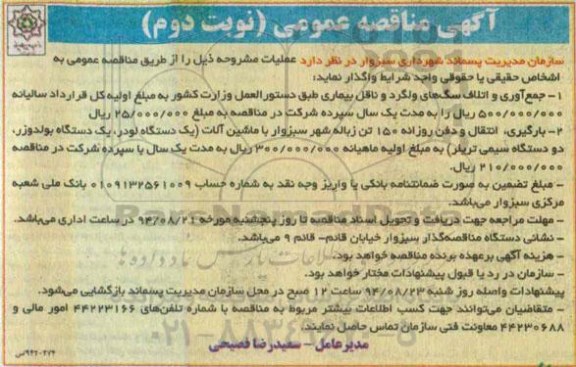 آگهی مناقصه عمومی (نوبت دوم)
سازمان مدیریت پسماند شهرداری سبزوار در نظر دارد عملیات مشروحه ذیل را از طریق مناقصه عمومی به
اشخاص حقیقی یا حقوقی واجد شرایط واگذار نماید:
۱- جمع‌آوری و اتلاف سگ‌های ولگرد و ناقل بیماری طبق دستورالعمل وزارت کشور به مبلغ اولیه کل قرارداد سالیانه
۵۰۰/۰۰۰/۰۰۰ ریال را به مدت یک سال سپرده شرکت در مناقصه به مبلغ ۲۵/۰۰۰/۰۰۰ ریال
۲- بارگیری، انتقال و دفن روزانه ۱۵۰ تن زباله شهر سبزوار با ماشین آلات (یک دستگاه لودر، یک دستگاه بولدوزر،
دو دستگاه سیمی تریلر) به مبلغ اولیه ماهیانه ۳۰۰/۰۰۰/۰۰۰ ریال به مدت یک سال با سپرده شرکت در مناقصه
۲۱۰/۰۰۰/۰۰۰ ریال.
- مبلغ تضمین به صورت ضمانتنامه بانکی یا واریز وجه نقد به شماره حساب ۰۱۰۹۱۳۲۵۶۱۰۰۹ بانک ملی شعبه
مرکزی سبزوار می‌باشد.
- مهلت مراجعه جهت دریافت و تحویل اسناد مناقصه تا روز پنجشنبه مورخه ۹۴/۰۸/۲۱ در ساعت اداری می‌باشد.
- نشانی دستگاه مناقصه‌گذار سبزوار خیابان قائم- قائم ۹ می‌باشد.
- هزینه آگهی برعهده برنده مناقصه خواهد بود.
- سازمان در رد یا قبول پیشنهادات مختار خواهد بود.
پیشنهادات واصله روز شنبه ۹۴/۰۸/۲۳ ساعت ۱۲ صبح در محل سازمان مدیریت پسماند بازگشایی می‌شود.
- متقاضیان می‌توانند جهت کسب اطلاعات بیشتر مربوط به مناقصه با شماره تلفن‌های ۴۴۲۲۳۱۶۶ امور مالی و
۴۴۲۳۰۶۸۸ معاونت فنی سازمان تماس حاصل نمایند.
مدیرعامل - سعیدرضا فصیحی